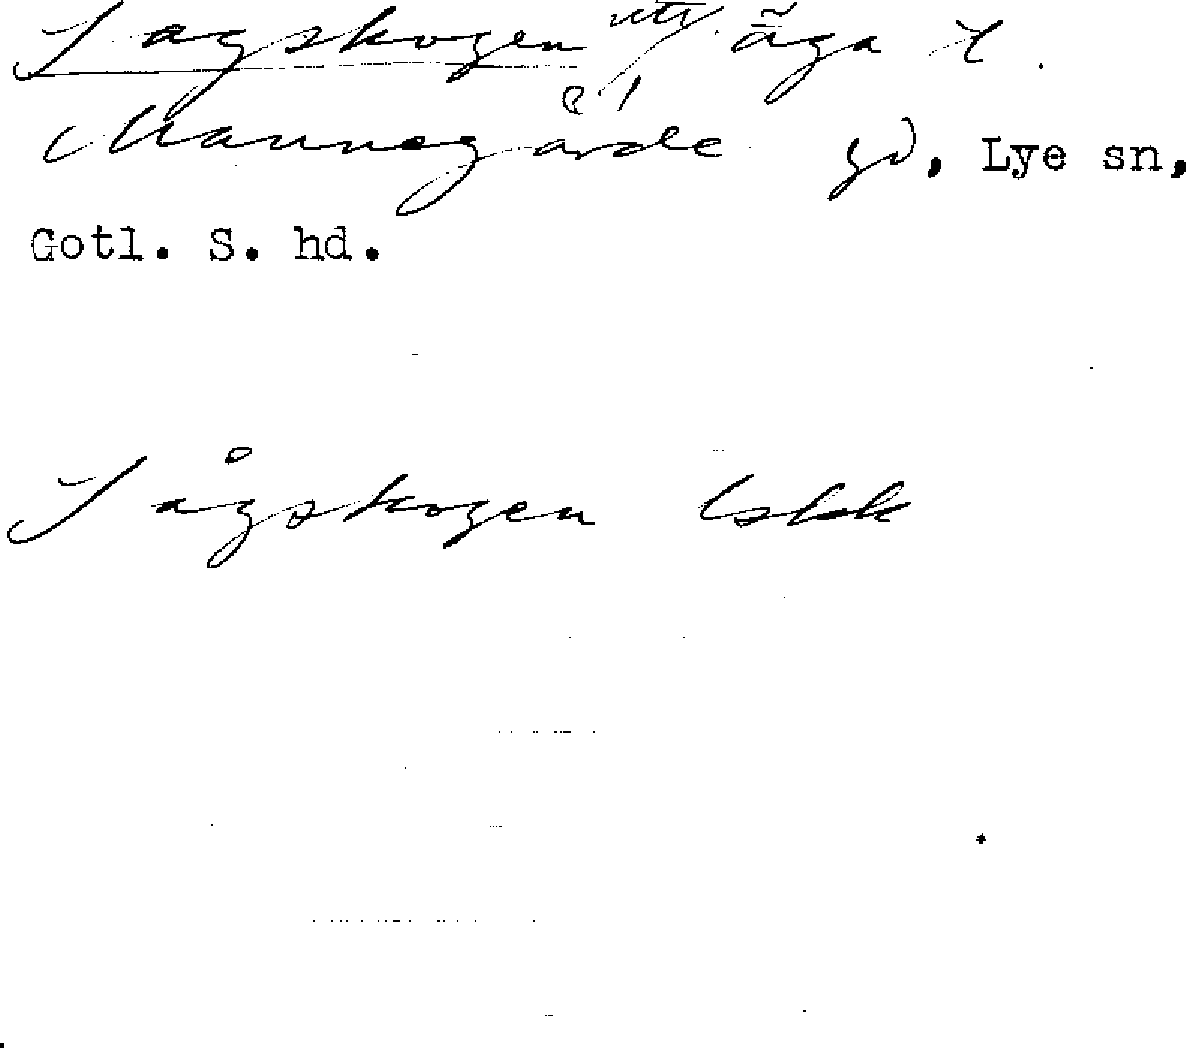 Sagskogen utj. äga t.
Mannegårde gd, Lye sn,
Gotl. S. hd.
Sågskogen